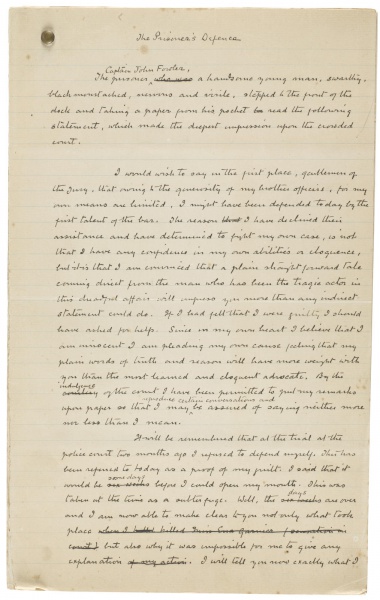 The Prisoner's Defence
Captain John Fowler,
The prisoner, who was a handsome young man, swarthy,
black moustached, nervous and virile, stepped to the front of the
dock and taking a paper from his pocket read the following
statement, which made the deepest impression upon the crowded
court.
I would wish to say in the first place, gentlemen of
the Jury, that owing to the generosity of my brother officers, for my
own means are limited, I might have been defended today by the
first talent of the bar. The reason I have declined their
assistance and have determined to fight my own case, is not
that I have any confidence in my own abilities or eloquence,
but it is that I am convinced that a plain straightforward tale
coming direct from the man who has been the tragic actor in
this dreadful affair will impress you more than any indirect
statement could do. If I had felt that I were guilty I should
have asked for help. Since in my own heart I believe that I
am innocent I am pleading my own cause feeling that my
plain words of truth and reason will have more weight with
you than the most learned and eloquent advocate. By the
indulgence
of the court I have been permitted to put my remarks
reproduce certain conversations and
upon paper so that I may be assured of saying neither more
nor less than I mean.
It will be remembered that at the trial at the
police court two months ago I refused to defend myself. This has
been referred to today as a proof of my guilt. I said that it
some days
would be six weeks before I could open my mouth. This was
taken at the time as a subterfuge. Well, the
days
are over
and I am now able to make clear to you not only what took
place when I killed Miss Ena Garnier (sensation in
court) but also why it was impossible for me to give any
explanation of my action. I will tell you now exactly what I